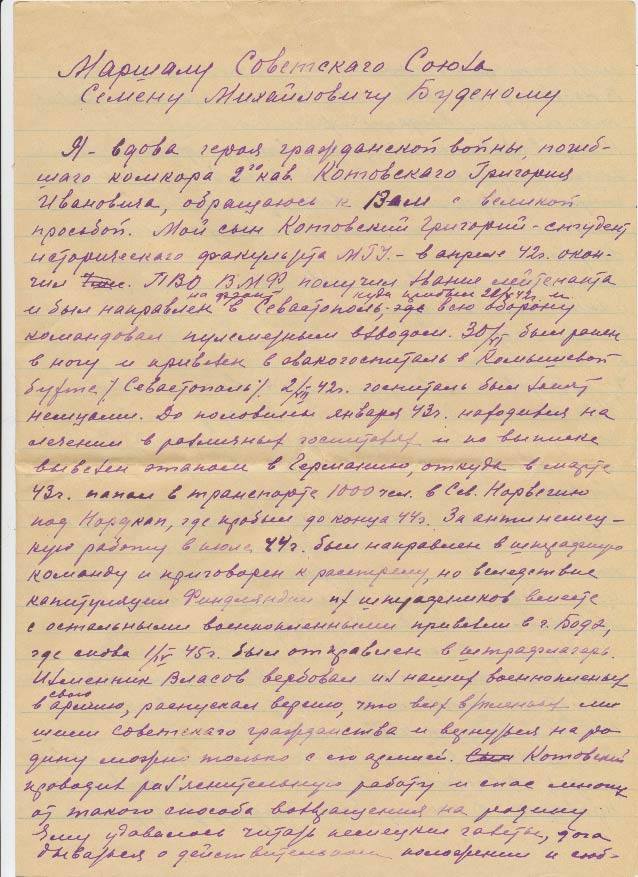 Маршалу Советскаго Союза
Семену Михайловичу Буденому
Я - вдова героя гражданской войны, погиб-
шаго комкора 2го кав. Котовскаго Григория
Ивановича, обращаюсь к Вам с великой
просьбой. Мой сын Котовский Григорий - студент
историческаго факультета МГУ - в апреле 42г. окон-
чил ПВО ВМФ получил звание лейтенанта
на фронт куда прибыл 42г. и
и был направлен в Севастополь - где всю оборону
командовал пулеметным взводом. 30/VI был ранен
в ногу и привезен в эвакогоспиталь в Камышевой
бухте /Севастополь/. 2/VII 42г. госпиталь был занят
немцами. До половины января 43г. находился на
лечении в различных госпиталях и по выписке
вывезен этапом в Германию, откуда в марте
43г. попал в транспорте 1000 чел. в Сев. Норвегию
под Нордкап, где пробыл до конца 44г. За антинемец-
кую работу в июле 44г. был направлен в штрафную
команду и приговорен к расстрелу, но вследствие
капитуляции Финляндии их штрафников вместе
с остальными военнопленными привезли в г. Бодо,
где снова 1/V 45г. был отправлен в штрафлагерь.
Изменник Власов вербовал из наших военнопленных
свою
в армию, распускал версию, что всех пленных ли
шили советскаго гражданства и вернуться на ро-
дину можно только с его армией. Котовский
проводил раз'яснительную работу и спас многих
от такого способа возвращения на родину.
Ему удавалось читать немецкие газеты, дога
дываться о действительном положении и сооб-